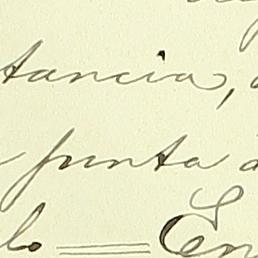 tancia,
junta
lo = En